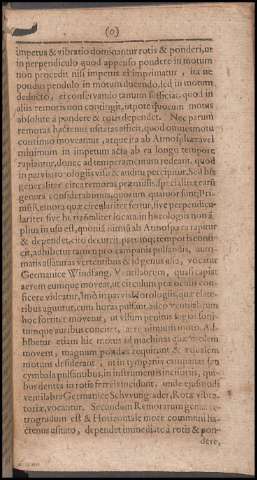 (0)
impetus & vibratio domantur rotis & ponderi, ut
in perpendiculo quod appenso pondere in motum
non procedit nisi impetus ei imprimatur, ita ne
pondus pendulo in motum ducendo, sed in motum
deducto, ei conservando tantum sufficiat, quod in
aliis remoris non contingit, utpote quorum motus
absolute à pondere & rotis dependet. Nec parum
remoras hactenus usitatas afficit, quod omnes motu
continuo moveantur, atque ita ab Atmosphæra vel
minimum in impetum acta ab ea longo tempore
rapiantur, donec ad temperamentum redeant, quod
in parvis horologiis visu & auditu percipitur. Sed his
generaliter circa remoras præmissis, specialiter earum
genera considerabimus, quorum quatuor sunt; Pri-
mò, Remora quæ circulariter fertur, sive perpendicu-
lariter sive horizontaliter locata in horologiis non am-
plius in usu est, quoniam nimis ab Atmosphæra rapitur
& dependet, citò decurrit, parumque temporis confi-
cit, adhibetur tamen pro campanis pulsandis, auto-
matis assaturas vertentibus & id genus aliis, vocatur
Germanicè Windfang, Ventilatorem, quasi capiat
aerem eumque moveat, ut circulum præ oculis con-
ficere videatur. Imò in parvis Horologiis, quæ elate-
ribus aguntur, cum horas pulsant, adeò ventilabrum
hoc fortiter movetur, ut visum penitus fugiat soni-
tumque auribus concitet, ac
motum. Ad-
hibetur etiam hic motus ad machinas quæ
movent, magnum pondus requirunt & 
motum desiderant, ut in tympanis campanas seu
cymbala pulsantibus, in instrumentis incisoriis, qui-
bus dentes in rotis ferreis incidunt, unde ejusmodi
ventilabris Germanicè Schwung-räder, Rotæ vibra-
toriæ, vocantur. Secundum Remorarum genus re-
trogradum est & Horizontale more communi ha-
ctenus usitato, dependet immediatè à rotis & pon-
dere,